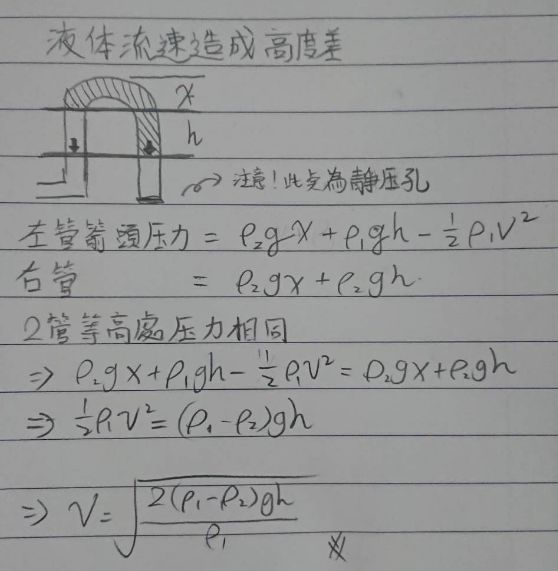 液体流速造成高度差
x
h
注意!此点為靜压孔
左管箭頭压力 = ρ₂gx + ρ₁gh - ½ρ₁V²
右管 = ρ₂gx + ρ₂gh.
2管等高處压力相同
⇒ ρ₂gx + ρ₁gh - ½ρ₁V² = ρ₂gx + ρ₂gh
⇒ ½ρ₁V² = (ρ₁-ρ₂)gh
⇒ V = √(2(ρ₁-ρ₂)gh / ρ₁)